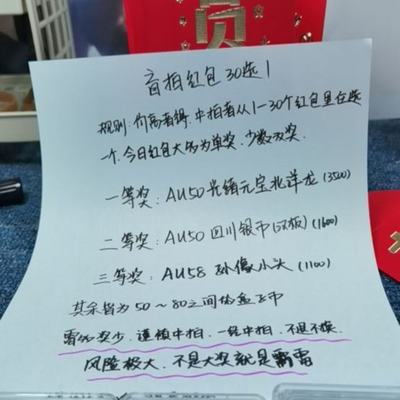 盲拍红包30选1
规则:价高者得,中拍者从1-30个红包里任选
一个,今日红包大多为单奖,少数双奖
一等奖:AU50光绪元宝北洋龙(3500)
二等奖:AU50四川银币(汉板)(1600)
三等奖:AU58孙像小头(1100)
其余皆为50~80之间的盒子币
雷多奖少,谨慎中拍,一经中拍,不退不换.
风险极大,不是大奖就是雷